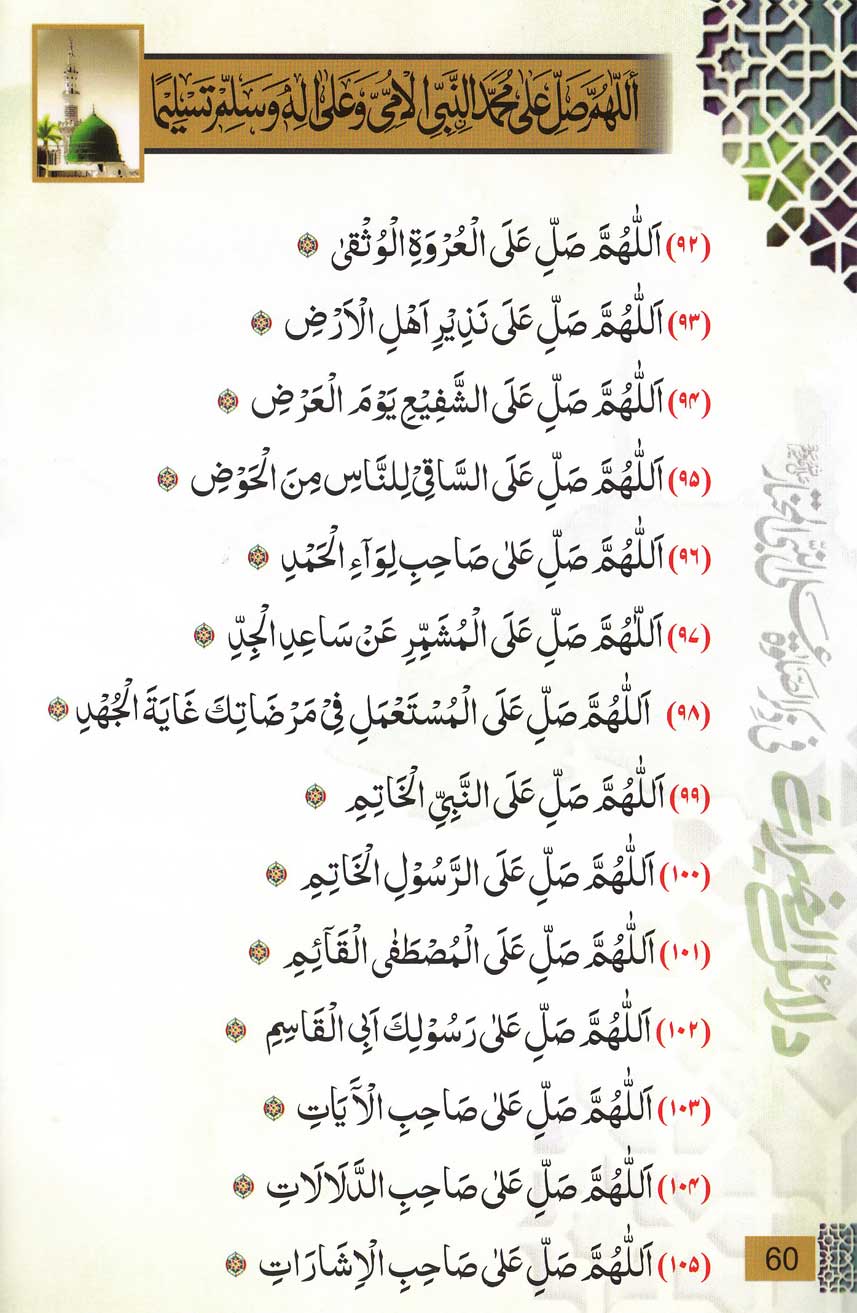 أَللّٰهُمَّ صَلِّ عَلٰى مُحَمَّدِ ِالنَّبِيِّ الْاُمِّيِّ وَعَلٰى اٰلِهٖ وَسَلِّمْ تَسْلِيْمًا
(۹۲) اَللّٰهُمَّ صَلِّ عَلَى الْعُرْوَةِ الْوُثْقىٰ
(۹۳) اَللّٰهُمَّ صَلِّ عَلَى نَذِيْرِ اَهْلِ الْاَرْضِ
(۹۴) اَللّٰهُمَّ صَلِّ عَلَى الشَّفِيْعِ يَوْمَ الْعَرْضِ
(۹۵) اَللّٰهُمَّ صَلِّ عَلَى السَّاقِيْ لِلنَّاسِ مِنَ الْحَوْضِ
(۹۶) اَللّٰهُمَّ صَلِّ عَلٰى صَاحِبِ لِوَآءِ الْحَمْدِ
(۹۷) اَللّٰهُمَّ صَلِّ عَلَى الْمُشَمِّرِ عَنْ سَاعِدِ الْجِدِّ
(۹۸) اَللّٰهُمَّ صَلِّ عَلَى الْمُسْتَعْمَلِ فِيْ مَرْضَاتِكَ غَايَةَ الْجُهْدِ
(۹۹) اَللّٰهُمَّ صَلِّ عَلَى النَّبِيِّ الْخَاتِمِ
(۱۰۰) اَللّٰهُمَّ صَلِّ عَلَى الرَّسُوْلِ الْخَاتِمِ
(۱۰۱) اَللّٰهُمَّ صَلِّ عَلَى الْمُصْطَفٰى الْقَآئِمِ
(۱۰۲) اَللّٰهُمَّ صَلِّ عَلٰى رَسُوْلِكَ اَبِى الْقَاسِمِ
(۱۰۳) اَللّٰهُمَّ صَلِّ عَلٰى صَاحِبِ الْاٰيَاتِ
(۱۰۴) اَللّٰهُمَّ صَلِّ عَلٰى صَاحِبِ الدَّلَالَاتِ
(۱۰۵) اَللّٰهُمَّ صَلِّ عَلٰى صَاحِبِ الْاِشَارَاتِ
دلائل الخیرات
60